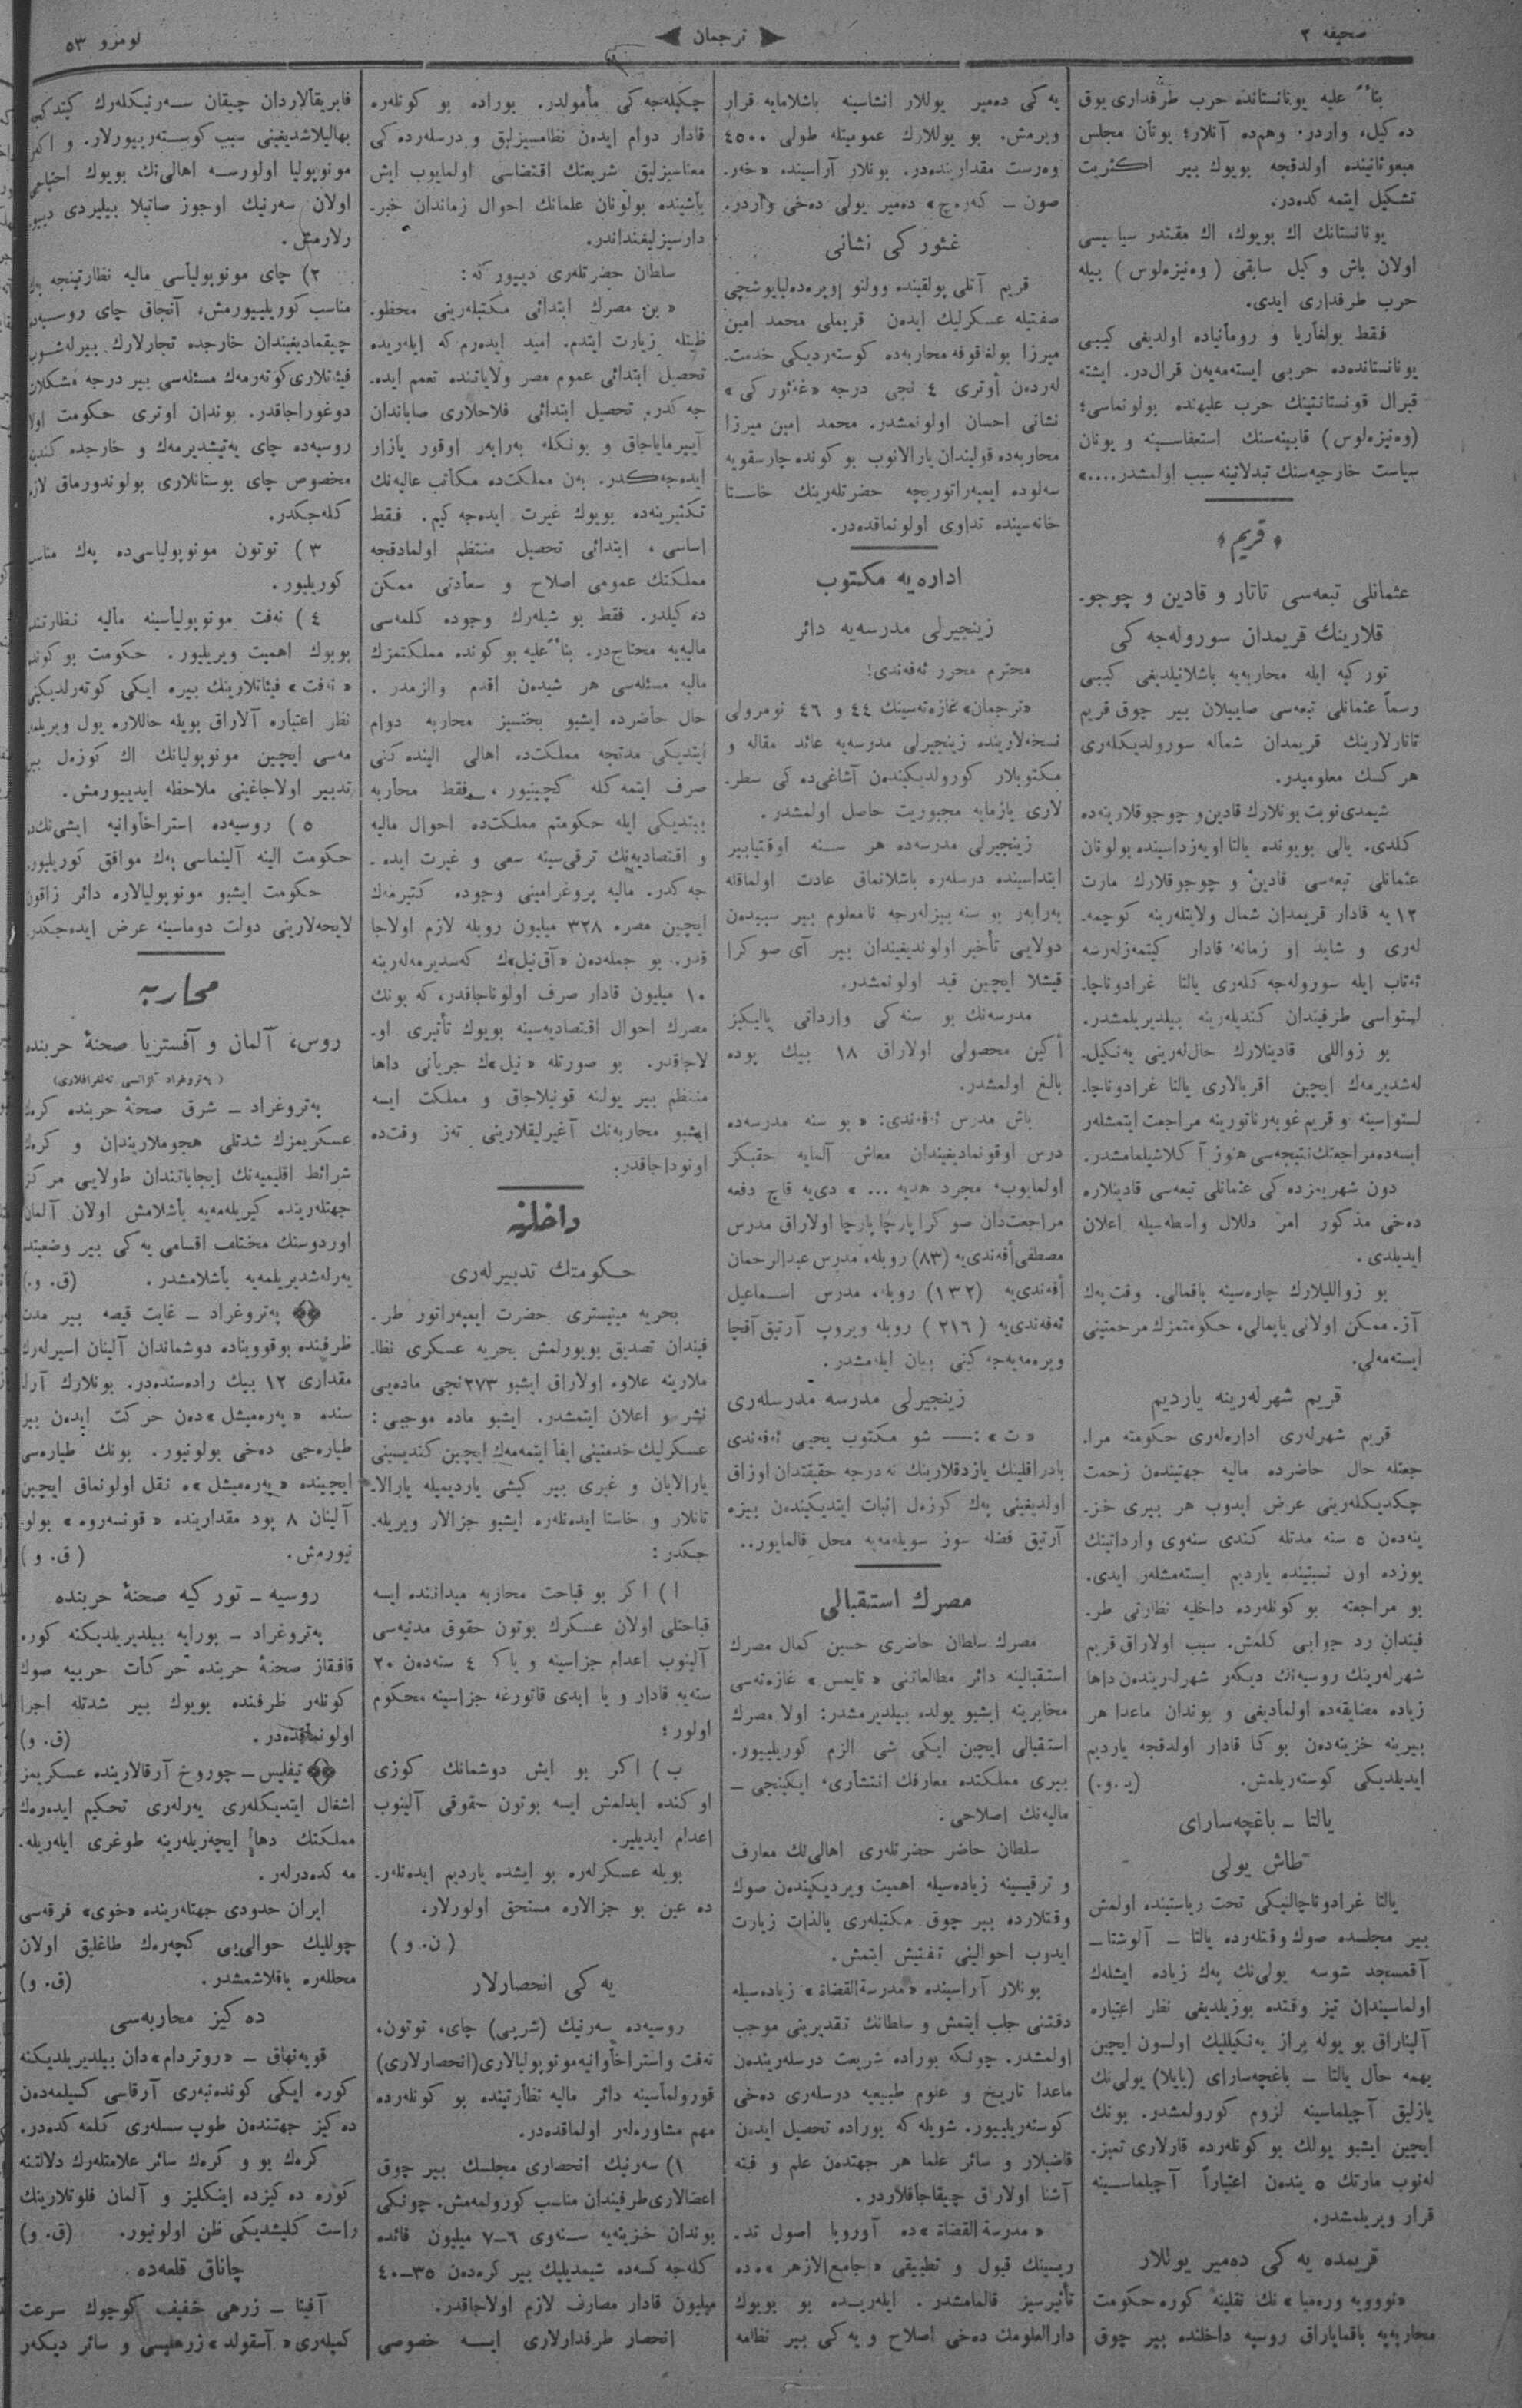 صحیفه ٢
ترجمان
نومرو ٥٣
بناءً علیه یونانستانده حرب طرفداری یوق
ده‌کیل، واردر. وهم‌ده آنلار؛ یونان مجلس
مبعوثانینده اولدقجه بویوك بیر اکثریت
تشکیل ایتمه‌کده‌در.
یونانستانك اك بویوك، اك مقتدر سیاسیسی
اولان باش وکیل سابقی (وه‌نیزه‌لوس) بیله
حرب طرفداری ایدی.
فقط بولغاریا و رومانیاده اولدیغی کیبی
یونانستانده‌ده حربی ایسته‌مه‌یه‌ن قرال‌در. ایشته
قیرال قونستانتینك حرب علیهنده بولونماسی؛
(وه‌نیزه‌لوس) قابینه‌سنك استعفاسینه و یونان
سیاست خارجیه‌سنك تبدلاتینه سبب اولمشدر....»
﴿ قریم ﴾
عثمانلی تبعه‌سی تاتار و قادین و چوجو-
قلارینك قریمدان سوروله‌جه‌کی
تورکیه ایله محاربه‌یه باشلانیلدیغی کیبی
رسماً عثمانلی تبعه‌سی صاییلان بیر چوق قریم
تاتارلارینك قریمدان شماله سورولدیکله‌ری
هرکسك معلومیدر.
شیمدی نوبت بونلارك قادین و چوجوقلارینه‌ده
کلدی. یالی بویونده یالتا اویه‌زداسینده بولونان
عثمانلی تبعه‌سی قادین و چوجوقلارك مارت
١٢یه قادار قریمدان شمال ولایتله‌رینه کوچمه-
له‌ری و شاید او زمانه قادار کیتمه‌زله‌رسه
ئه‌تاب ایله سوروله‌جه‌کله‌ری یالتا غرادوناچا-
لستواسی طرفیندان کندیله‌رینه بیلدیریلمشدر.
بو زواللی قادینلارك حال‌له‌رینی یه‌نکیل-
له‌شدیرمه‌ك ایچین اقربالاری یالتا غرادوناچا-
لستواسینه و قریم غوبه‌رناتورینه مراجعت ایتمشله‌ر
ایسه‌ده مراجعتك نتیجه‌سی هنوز آکلاشیلمامشدر.
دون شهریمزده‌کی عثمانلی تبعه‌سی قادینلاره
ده‌خی مذکور امر دلال واسطه‌سیله اعلان
ایدیلدی.
بو زواللیلارك چاره‌سینه باقمالی. وقت په‌ك
آز. ممکن اولانی یاپمالی، حکومتمزك مرحمتینی
ایسته‌مه‌لی.
قریم شهرله‌رینه یاردیم
قریم شهرله‌ری اداره‌له‌ری حکومته مرا-
جعتله حال حاضرده مالیه جهتیندن زحمت
چکدیکله‌رینی عرض ایدوب هر بیری خز-
ینه‌دن ٥ سنه مدتله کندی سنه‌وی وارداتینك
یوزده اون نسبتینده یاردیم ایسته‌مشله‌ر ایدی.
بو مراجعته بو کونله‌رده داخلیه نظارتی طر-
فیندان رد جوابی کلمش. سبب اولاراق قریم
شهرله‌رینك روسیه‌نك دیکه‌ر شهرله‌رینده‌ن داها
زیاده مضایقه‌ده اولمادیغی و بوندان ماعدا هر
بیرینه خزینه‌ده‌ن بوکا قادار اولدقجه یاردیم
ایدیلدیکی کوسته‌ریلمش. (ی.و.)
یالتا ــ باغچه‌سارای
طاش یولی
یالتا غرادوناچالنیکی تحت ریاستینده اولمش
بیر مجلسده صوك وقتله‌رده یالتا ــ آلوشتا ــ
آقمسجد شوسه یولی‌نك په‌ك زیاده ایشله‌ك
اولماسیندان تیز وقتده بوزیلدیغی نظر اعتباره
آلیناراق بو یوله براز یه‌نکیللیك اولسون ایچین
بهمه حال یالتا ــ باغچه‌سارای (یایلا) یولی‌نك
یازلیق آچیلماسینه لزوم کورولمشدر. بونك
ایچین ایشبو یولك بو کونله‌رده قارلاری تمیز-
له‌نوب مارتك ٥ینده‌ن اعتباراً آچیلماسینه
قرار ویریلمشدر.
قریمده یه‌کی ده‌میر یوللار
«نوویه وره‌میا» نك نقلینه کوره حکومت
محاربه‌یه باقمایاراق روسیه داخلنده بیر چوق
یه‌کی ده‌میر یوللار انشاسینه باشلامایه قرار
ویرمش. بو یوللارك عمومیتله طولی ٤٥٠٠
وه‌رست مقدارینده‌در. بونلار آراسینده «خه‌ر-
صون ــ که‌ره‌چ» ده‌میر یولی ده‌خی واردر.
غئورکی نشانی
قریم آتلی پولقینده وولنو اوپره‌ده‌لیایوشچی
صفتیله عسکرلیك ایده‌ن قریملی محمد امین
میرزا بولغاقوفه محاربه‌ده کوسته‌ردیکی خدمت-
له‌ردن اوتری ٤ نجی درجه «غه‌ئورکی»
نشانی احسان اولونمشدر. محمد امین میرزا
محاربه‌ده قولیندان یارالانوب بو کونده چارسقویه
سه‌لوده ایمپه‌راتوریچه حضرتله‌رینك خاستا
خانه‌سینده تداوی اولونماقده‌در.
اداره‌یه مکتوب
زینجیرلی مدرسه‌یه دائر
محترم محرر ئه‌فه‌ندی!
«ترجمان» غازه‌ته‌سینك ٤٤ و ٤٦ نومرولی
نسخه‌لارینده زینجیرلی مدرسه‌یه عائد مقاله و
مکتوبلار کورولدیکیندن آشاغی‌ده‌کی سطر-
لاری یازمایه مجبوریت حاصل اولمشدر.
زینجیرلی مدرسه‌ده هر سنه اوقتیابیر
ابتداسینده درسله‌ره باشلانماق عادت اولماقله
به‌رابه‌ر بو سنه بیزله‌رجه نامعلوم بیر سببدن
دولایی تأخیر اولوندیغیندان بیر آی صوکرا
قیشلا ایچین قید اولونمشدر.
مدرسه‌نك بو سنه‌کی وارداتی یالیکیز
أکین محصولی اولاراق ١٨ بیك پوده
بالغ اولمشدر.
باش مدرس ئه‌فه‌ندی: «بو سنه مدرسه‌ده
درس اوقونمادیغیندان معاش آلمایه حقیکز
اولمایوب، مجرد هدیه ...» دی‌یه قاچ دفعه
مراجعتدان صوکرا پارچا پارچا اولاراق مدرس
مصطفی أفه‌ندی‌یه (٨٣) روبله، مدرس عبدالرحمان
أفه‌ندی‌یه (١٣٢) روبله، مدرس اسماعیل
ئه‌فه‌ندی‌یه (٢١٦) روبله ویروب آرتیق آقچا
ویره‌مه‌یه‌جه‌کینی بیان ایله‌مشدر.
زینجیرلی مدرسه مدرسله‌ری
«ت»: ــــ شو مکتوب یحیی ئه‌فه‌ندی
بادراقلینك یازدقلارینك نه درجه حقیقتدان اوزاق
اولدیغینی په‌ك کوزه‌ل اثبات ایتدیکینده‌ن بیزه
آرتیق فضله سوز سویله‌مه‌یه محل قالمایور..
مصرك استقبالی
مصرك سلطان حاضری حسین کمال مصرك
استقبالینه دائر مطالعاتنی «تایمس» غازه‌ته‌سی
مخابرینه ایشبو یولده بیلدیرمشدر: اولا مصرك
استقبالی ایچین ایکی شی الزم کوریلییور.
بیری مملکتده معارفك انتشاری، ایکینجی ــ
مالیه‌نك اصلاحی.
سلطان حاضر حضرتله‌ری اهالی‌نك معارف
و ترقیسینه زیاده‌سیله اهمیت ویردیکیندن صوك
وقتلارده بیر چوق مکتبله‌ری بالذات زیارت
ایدوب احوالینی تفتیش ایتمش.
بونلار آراسینده «مدرسة القضاة» زیاده‌سیله
دقتنی جلب ایتمش و سلطانك تقدیرینی موجب
اولمشدر. چونکه بوراده شریعت درسله‌رینده‌ن
ماعدا تاریخ و علوم طبیعیه درسله‌ری ده‌خی
کوسته‌ریلییور. شویله که بوراده تحصیل ایده‌ن
قاضیلار و سائر علما هر جهتدن علم و فنه
آشنا اولاراق چیقاجاقلاردر.
«مدرسة القضاة»ده آوروپا اصول تد-
ریسینك قبول و تطبیقی «جامع الازهر»ه‌ده
تأثیرسیز قالمامشدر. ایله‌ریده بو بویوك
دارالعلومك ده‌خی اصلاح و یه‌کی بیر نظامه
چکیله‌جه‌کی مأمولدر. بوراده بو کونله‌ره
قادار دوام ایده‌ن نظامسیزلیق و درسله‌رده‌کی
معناسیزلیق شریعتك اقتضاسی اولمایوب ایش
باشینده بولونان علمانك احوال زماندان خبر-
دارسیزلیغنداندر.
سلطان حضرتله‌ری دییور که:
«بن مصرك ابتدائی مکتبله‌رینی محظو-
ظیتله زیارت ایتدم. امید ایده‌رم که ایله‌ریده
تحصیل ابتدائی عموم مصر ولایاتنده تعمم ایده-
جه‌کدر. تحصیل ابتدائی فلاحلاری صاباندان
آییرمایاجاق و بونکله به‌رابه‌ر اوقور یازار
ایده‌جه‌کدر. به‌ن مملکت‌ده مکاتب عالیه‌نك
تکثیرینه‌ده بویوك غیرت ایده‌جه‌کیم. فقط
اساسی، ابتدائی تحصیل منتظم اولمادقجه
مملکتك عمومی اصلاح و سعادتی ممکن
ده‌کیلدر. فقط بو شیله‌رك وجوده کلمه‌سی
مالیه‌یه محتاج‌در. بناءً علیه بو کونده مملکتمزك
مالیه مسئله‌سی هر شیده‌ن اقدم والزمدر.
حال حاضرده ایشبو بختسیز محاربه دوام
ایتدیکی مدتجه مملکت‌ده اهالی الینده‌کنی
صرف ایتمه‌کله کچینیور، فقط محاربه
بیتدیکی ایله حکومتم مملکت‌ده احوال مالیه
و اقتصادیه‌نك ترقی‌سینه سعی و غیرت ایده-
جه‌کدر. مالیه پروغرامینی وجوده کتیرمه‌ك
ایچین مصره ٣٢٨ میلیون روبله لازم اولاجا
قدر. بو جمله‌ده‌ن «آق‌نیل»ك که‌سدیرمه‌له‌رینه
١٠ میلیون قادار صرف اولوناجاقدر، که بونك
مصرك احوال اقتصادیه‌سینه بویوك تأثیری او-
لاجاقدر. بو صورتله «نیل»ك جریانی داها
منتظم بیر یولنه قونیلاجاق و مملکت ایسه
ایشبو محاربه‌نك آغیرلیقلارینی ته‌ز وقت‌ده
اونوداجاقدر.
داخلیه
حکومتك تدبیرله‌ری
بحریه مینیستری حضرت ایمپه‌راتور طر-
فیندان تصدیق بویورلمش بحریه عسکری نظا-
ملارینه علاوه اولاراق ایشبو ٢٧٣نجی ماده‌یی
نشر و اعلان ایتمشدر. ایشبو ماده موجبی:
عسکرلیك خدمتینی ایفا ایتمه‌مه‌ك ایچین کندیسینی
یارالایان و غیری بیر کیشی یاردیمیله یارالا-
تانلار و خاستا ایده‌نله‌ره ایشبو جزالار ویریله-
جکدر:
ا) اکر بو قباحت محاربه میداننده ایسه
قباحتلی اولان عسکرك بوتون حقوق مدنیه‌سی
آلینوب اعدام جزاسینه و یا ٤ سنه‌ده‌ن ٢٠
سنه‌یه قادار و یا ابدی قاتورغه جزاسینه محکوم
اولور؛
ب) اکر بو ایش دوشمانك کوزی
اوکنده ایدلمش ایسه بوتون حقوقی آلینوب
اعدام ایدیلیر.
بویله عسکرله‌ره بو ایشده یاردیم ایده‌نله‌ر-
ده عین بو جزالاره مستحق اولورلار.
(ن. و)
یه‌کی انحصارلار
روسیه‌ده سه‌رنیك (شرپی) چای، توتون،
نه‌فت و استراخاوانیه مونوپولیالاری (انحصارلاری)
قورولماسینه دائر مالیه نظارتینده بو کونله‌رده
مهم مشاوره‌له‌ر اولماقده‌در.
١) سه‌رنیك انحصاری مجلسك بیر چوق
اعضالاری طرفیندان مناسب کورولمه‌مش. چونکی
بوندان خزینه‌یه سنه‌وی ٦ــ٧ میلیون فائده
کله‌جه‌کسه‌ده شیمدیلیك بیر کره‌ده‌ن ٣٥ــ٤٠
میلیون قادار مصارف لازم اولاجاقدر.
انحصار طرفدارلاری ایسه خصوصی
فابریقالاردان چیقان سه‌رنیکله‌رك کیتدکجه
بهالیلاشدیغینی سبب کوسته‌رییورلار. و اکر
مونوپولیا اولورسه اهالی‌نك بویوك احتیاجی
اولان سه‌رنیك اوجوز صاتیلا بیلیردی دییو-
رلارمش.
٢) چای مونوپولیاسی مالیه نظارتینجه په‌ك
مناسب کوریلییورمش، آنجاق چای روسیه‌ده
چیقمادیغیندان خارجده تجارلارك بیرله‌شوب
فیئاتلاری کوته‌رمه‌ك مسئله‌سی بیر درجه مشکلات
دوغوراجاقدر. بوندان اوتری حکومت اولا
روسیه‌ده چای یه‌تیشدیرمه‌ك و خارجده کندینه
مخصوص چای بوستانلاری بولوندورماق لازم
کله‌جکدر.
٣) توتون مونوپولیاسی‌ده په‌ك مناسب
کوریلیور.
٤) نه‌فت مونوپولیاسینه مالیه نظارتنده
بویوك اهمیت ویریلیور. حکومت بو کونده
«نه‌فت» فیئاتلارینك بیره ایکی کوته‌رلدیکینی
نظر اعتباره آلاراق بویله حاللاره یول ویریلمه-
مه‌سی ایچین مونوپولیانك اك کوزه‌ل بیر
تدبیر اولاجاغینی ملاحظه ایدییورمش.
٥) روسیه‌ده استراخاوانیه ایشی‌نك‌ده
حکومت الینه آلینماسی په‌ك موافق کوریلیور.
حکومت ایشبو مونوپولیالاره دائر زاقون
لایحه‌لارینی دولت دوماسینه عرض ایده‌جکدر.
محاربه
روس، آلمان و آفستریا صحنهٔ حربنده
(په‌تروغراد آژانسی ته‌لغرافلاری)
په‌تروغراد ــ شرق صحنهٔ حربنده کرك
عسکریمزك شدتلی هجوملاریندان و کرك
شرائط اقلیمیه‌نك ایجاباتندان طولایی مرکز
جهتله‌رینده کیریله‌مه‌یه باشلامش اولان آلمان
اوردوسنك مختلف اقسامی یه‌کی بیر وضعیتده
یه‌رله‌شدیریلمه‌یه باشلامشدر. (ق. و.)
په‌تروغراد ــ غایت قیصه بیر مدت
ظرفنده بوقووینا‌ده دوشماندان آلینان اسیرله‌رك
مقداری ١٢ بیك راده‌سنده‌در. بونلارك آرا-
سنده «په‌ره‌میشل»ده‌ن حرکت ایده‌ن بیر
طیاره‌جی ده‌خی بولونیور. بونك طیاره‌سی
ایچینده «په‌ره‌میشل»ه نقل اولونماق ایچین
آلینان ٨ پود مقدارینده «قونسه‌روه» بولو-
نیورمش. (ق. و)
روسیه ــ تورکیه صحنهٔ حربنده
په‌تروغراد ــ بورایه بیلدیریلدیکنه کوره
قافقاز صحنهٔ حربنده حرکات حربیه صوك
کونله‌ر ظرفنده بویوك بیر شدتله اجرا
اولونماقده‌در. (ق. و)
تیفلیس ــ چوروخ آرقالارینده عسکریمز
اشغال ایتدیکله‌ری یه‌رله‌ری تحکیم ایده‌ره‌ك
مملکتك دها ایچه‌ریله‌رینه طوغری ایله‌ریله-
مه‌کده‌درله‌ر.
ایران حدودی جهتله‌رینده «خوی» فرقه‌سی
چوللیك حوالی‌یی کچه‌ره‌ك طاغلیق اولان
محللره یاقلاشمشدر. (ق. و)
ده‌کیز محاربه‌سی
قوپه‌نهاق ــ «روتردام»دان بیلدیریلدیکنه
کوره ایکی کونده‌نبه‌ری آرقاسی کسیلمه‌ده‌ن
ده‌کیز جهتنده‌ن طوپ سسله‌ری کلمه‌کده‌در.
کرك بو و کرك سائر علامتله‌رك دلالتنه
کوره ده‌کیزده اینکلیز و آلمان فلوتلارینك
راست کلیشدیکی ظن اولونیور. (ق. و)
چاناق قلعه‌ده
آفینا ــ زرهی خفیف کوچوك سرعت
کمیله‌ری «آسقولد» زرهلیسی و سائر دیکه‌ر